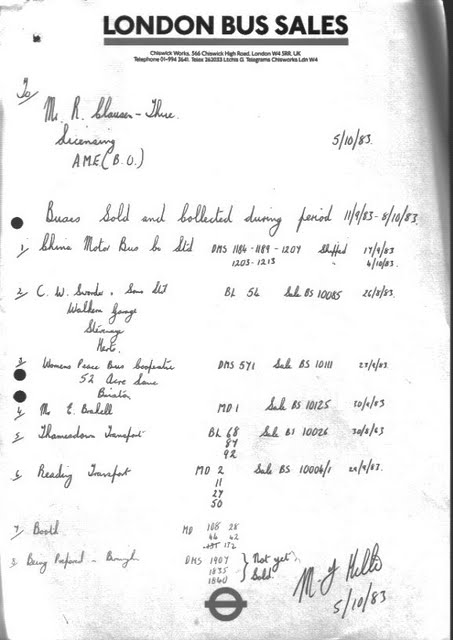 LONDON BUS SALES
Chiswick Works, 566 Chiswick High Road, London W4 5RR, UK
Telephone 01-994 2641. Telex 262033 Ltchis G. Telegrams Chisworks Ldn W4
To
Mr. R. Clausen-Thue.
Licensing
A.M.E (B.O.)
5/10/83.
Buses Sold and Collected during period 11/9/83 - 8/10/83.
1/ China Motor Bus Co Ltd DMS 1184 - 1189 - 1207 Shipped 17/9/83
1203 - 1213 " 4/10/83.
2/ C. W. Swords & Sons Ltd BL 54 Sale BS 10085 26/8/83.
Walkern Garage
Stevenage
Herts.
3 Womens Peace Bus Cooperative DMS 571 Sale BS 10111
52 Acre Lane
Brixton
4/ Mr E. Brakell MD 1 Sale BS 10125 30/9/83
5/ Thamesdown Transport BL 68 Sale BS 10026 30/8/83
87
92
6/ Reading Transport MD 2 Sale BS 10004/1
11
27
50
7/ Booth MD 108 28
44 42
152
8. Being Prepared - DMS 1907 } Not yet
1835 Sold.
1840
5/10/83